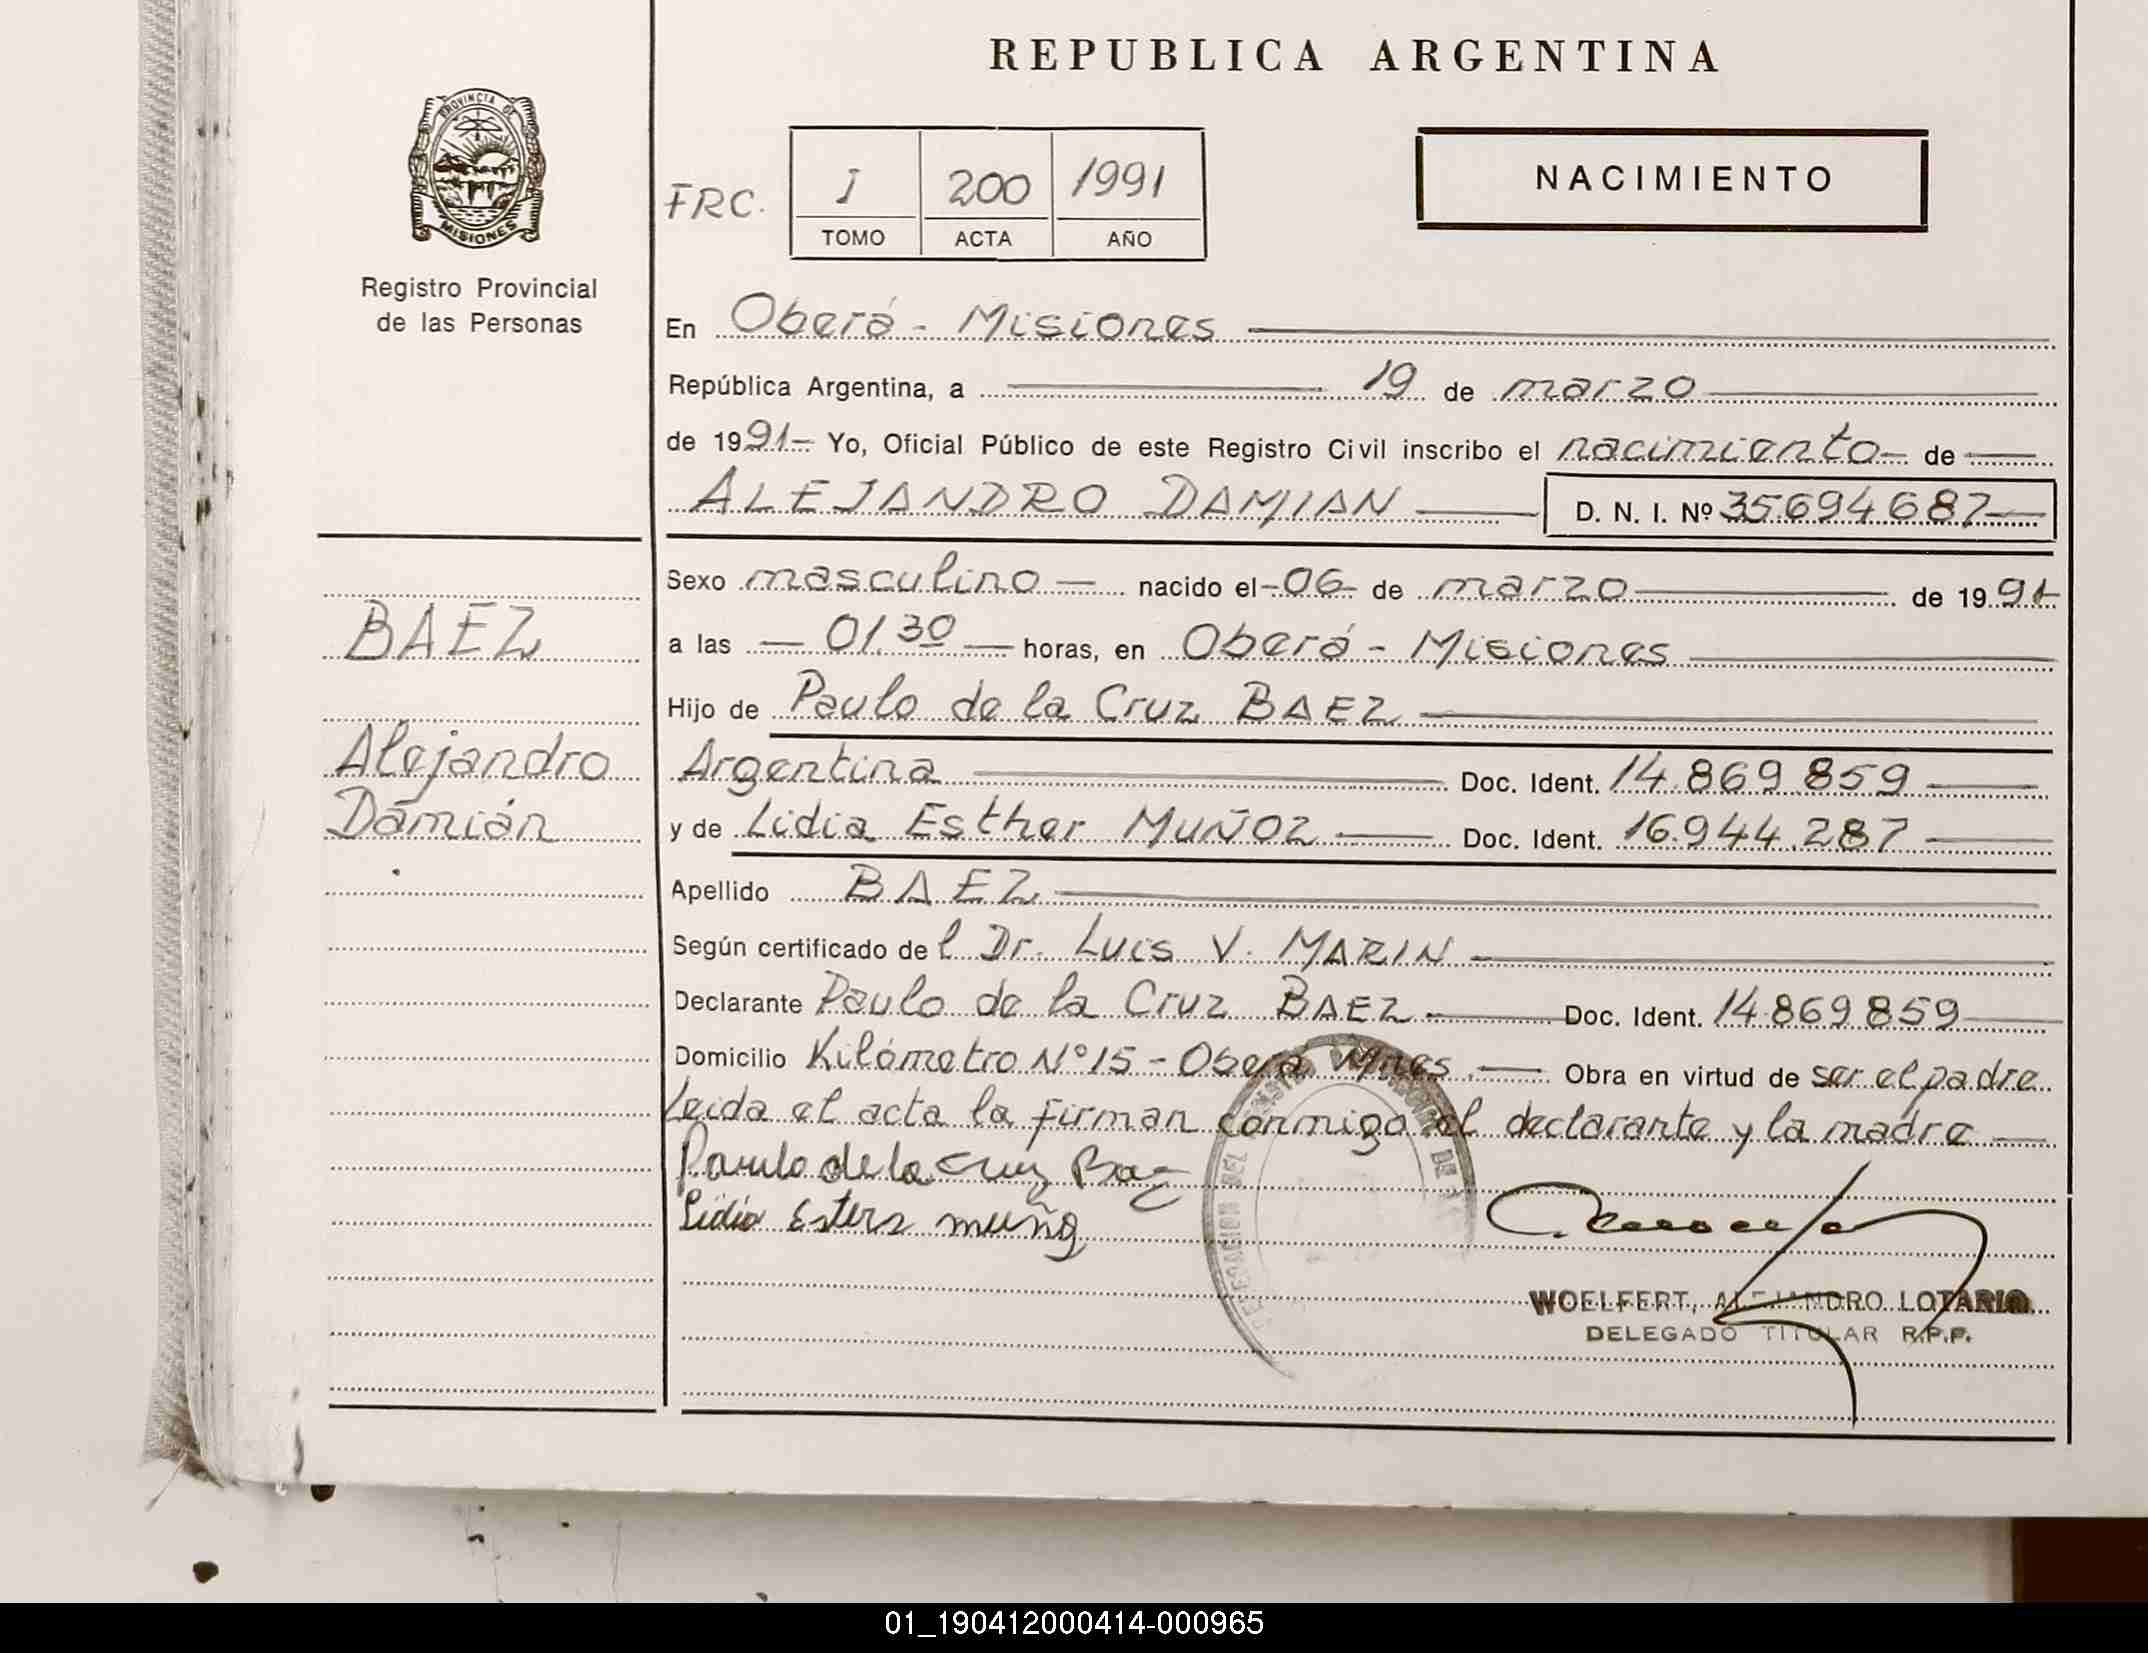 REPUBLICA ARGENTINA
PROVINCIA DE
MISIONES
Registro Provincial
de las Personas
FRC.
I 200 1991
TOMO ACTA AÑO
NACIMIENTO
En Oberá - Misiones
República Argentina, a 19 de marzo
de 1991 - Yo, Oficial Público de este Registro Civil inscribo el nacimiento de
ALEJANDRO DAMIAN D. N. I. Nº 35694687
Sexo masculino nacido el 06 de marzo de 1991
a las 01.30 horas, en Oberá - Misiones
Hijo de Paulo de la Cruz BAEZ
Argentina Doc. Ident. 14.869.859
y de Lidia Esther MUÑOZ Doc. Ident. 16.944.287
Apellido BAEZ
Según certificado del Dr. Luis V. MARIN
Declarante Paulo de la Cruz BAEZ Doc. Ident. 14.869.859
Domicilio Kilómetro Nº 15 - Oberá Mnes. Obra en virtud de ser el padre
Leida el acta la firman conmigo el declarante y la madre
Paulo de la Cruz Baez
Lidia Muñoz
BAEZ
Alejandro
Damián
DELEGACION DEL
WOELFERT, ALEJANDRO LOTARIO
DELEGADO TITULAR R.P.P.
01_190412000414-000965